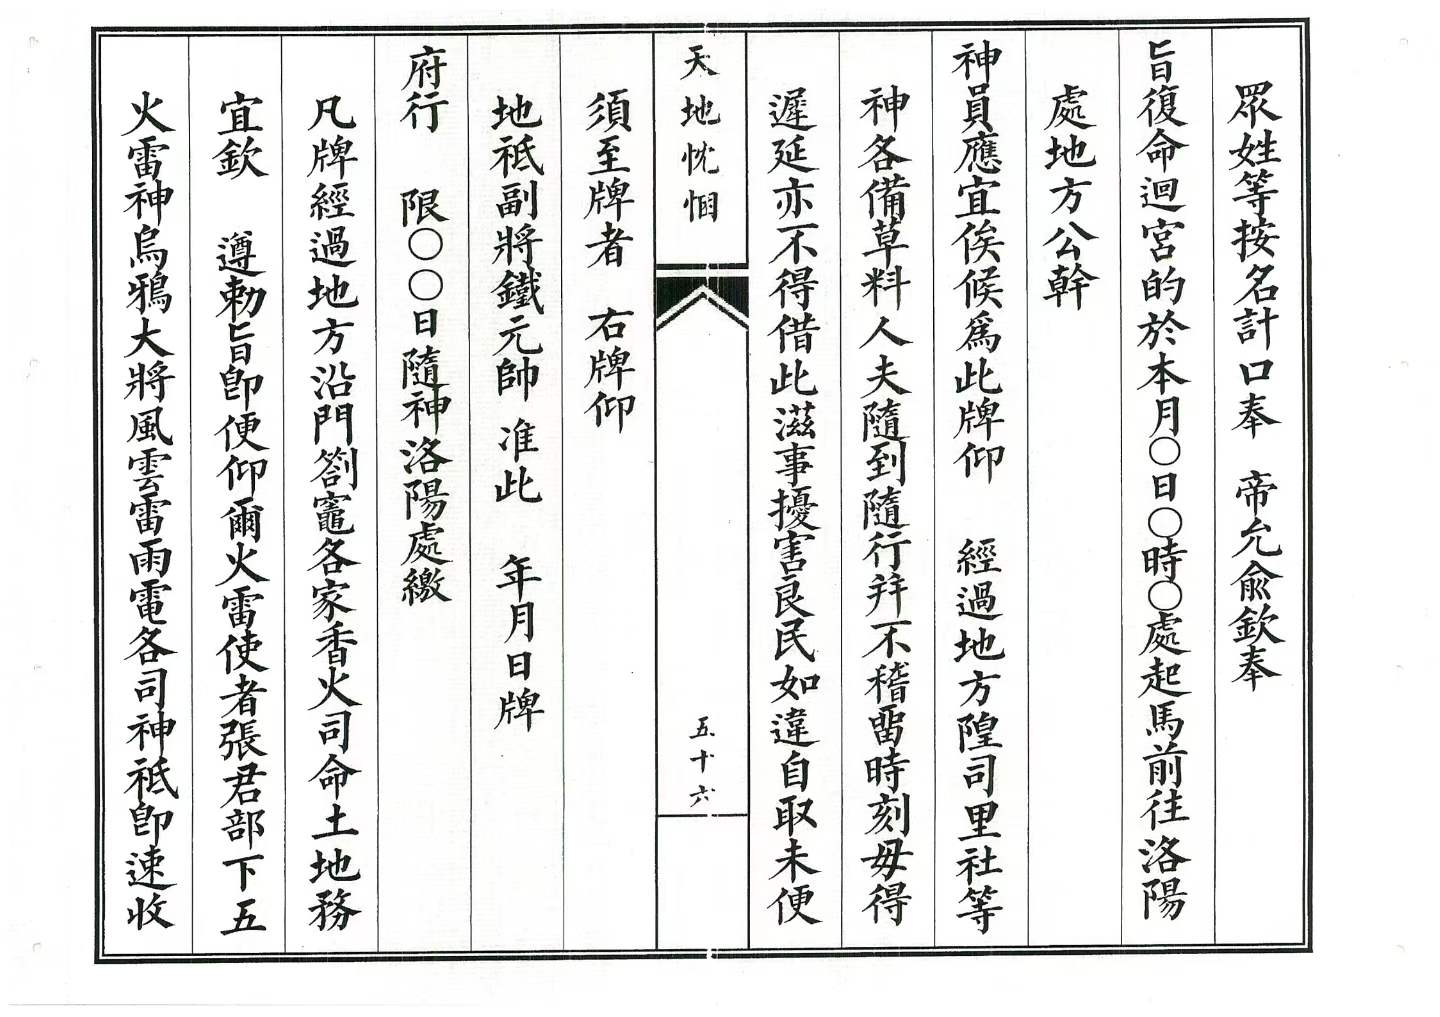 眾姓等按名計口奉　帝允兪欽奉
旨復命迴宮的於本月〇日〇時〇處起馬前往洛陽
處地方公幹
神員應宜俟候爲此牌仰　經過地方隍司里社等
神各備草料人夫隨到隨行拜不稽畱時刻毋得
遲延亦不得借此滋事擾害良民如違自取未便
天地忱悃
五十六
須至牌者　右牌仰
地祇副將鐵元帥　准此　年月日牌
府行　限〇〇日隨神洛陽處繳
凡牌經過地方沿門劄竈各家香火司命土地務
宜欽　遵勅旨卽便仰爾火雷使者張君部下五
火雷神烏鴉大將風雲雷雨電各司神祇卽速收